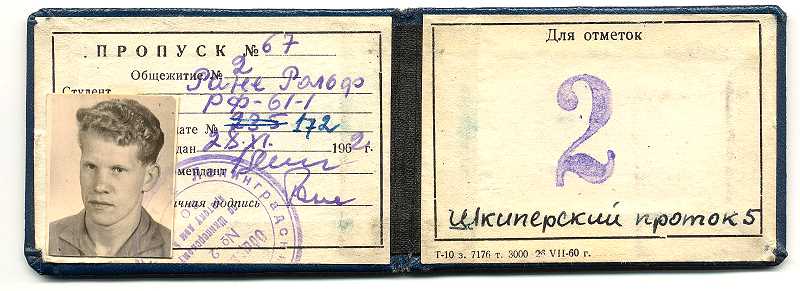 ПРОПУСК № 67
Общежитие № 2
Студент Рине Рольф
РФ-61-1
нате № 235 172
дан 28.XI. 1962 г.
мендант
чная подпись
Для отметок
2
Шкиперский проток 5
Т-10 з. 7176 т. 3000 26 VII-60 г.